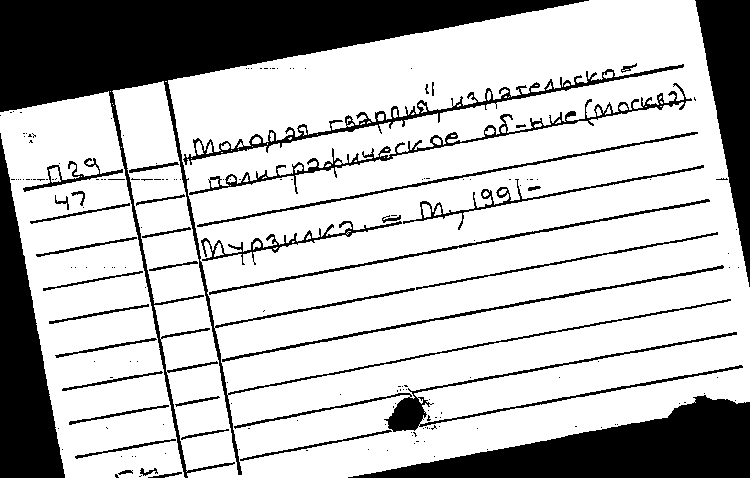 П29
47
"Молодая гвардия", издательско=
полиграфическое об-ние (Москва).
Мурзилка. = М., 1991-